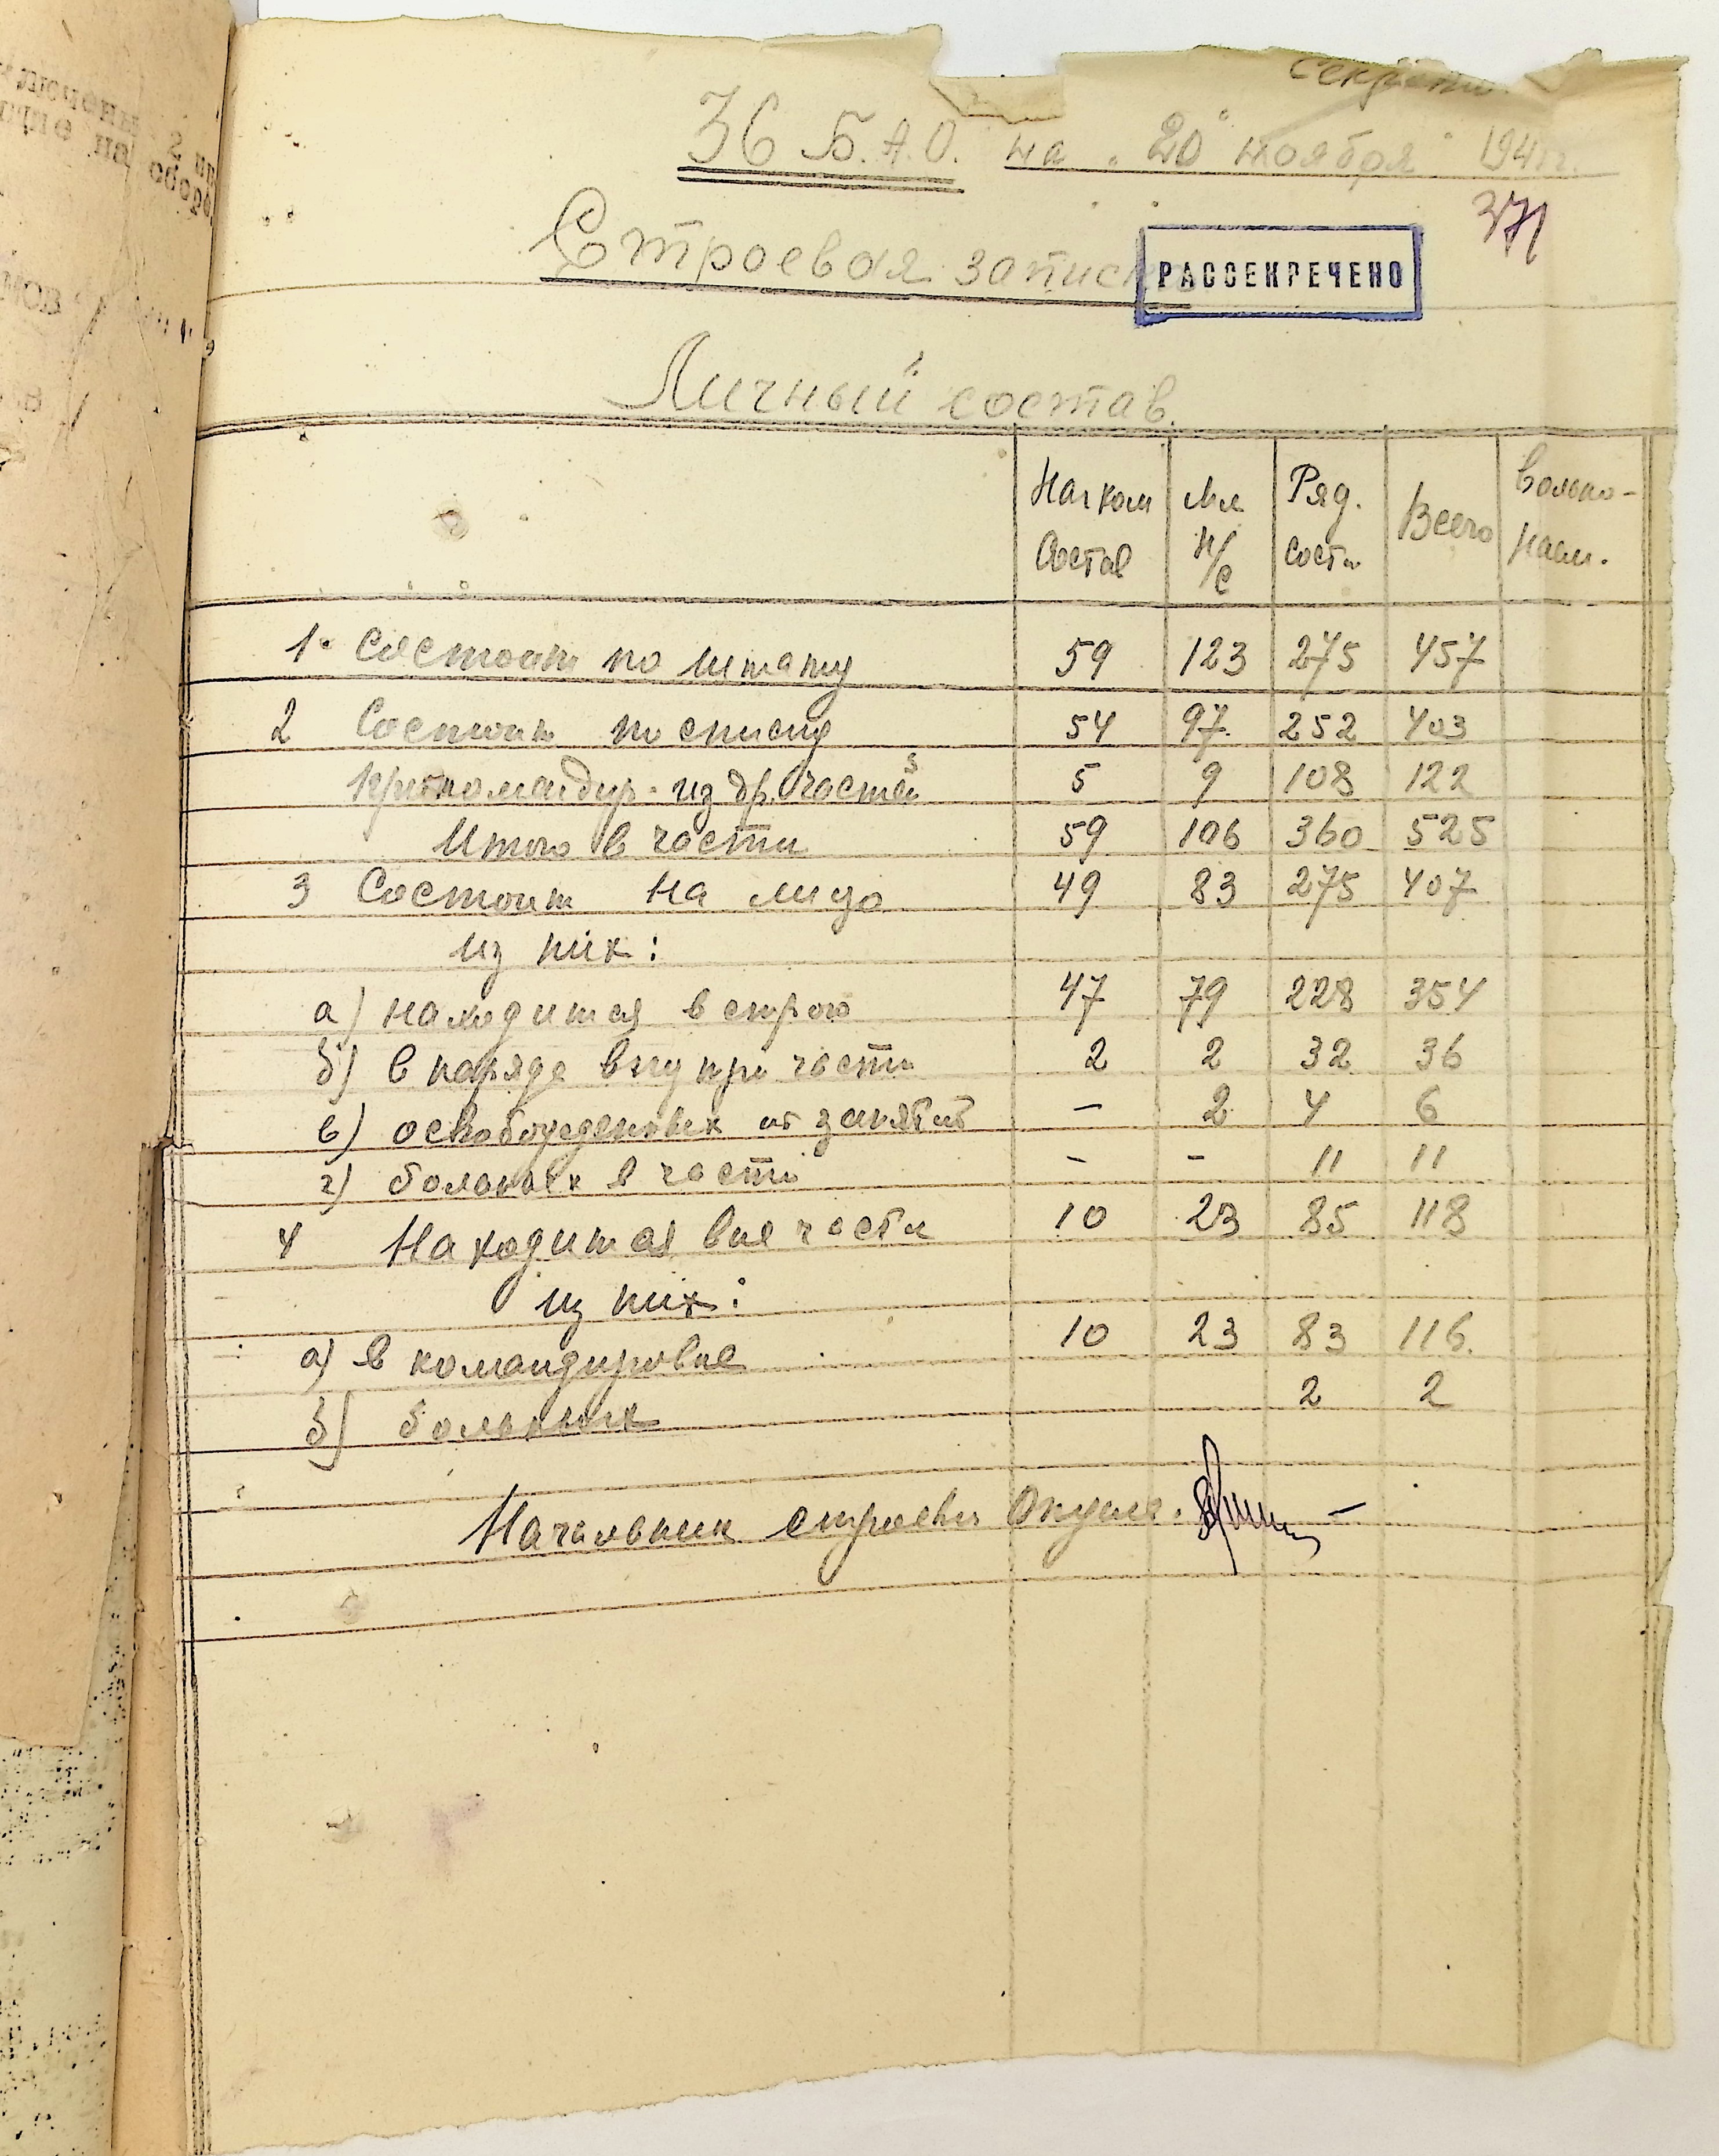 Секретно
36 Б.А.О. на "20" ноября 1941г.
Строевая записка
РАССЕКРЕЧЕНО
Личный состав.
Начком Состав Мл н/с Ряд. сост. Всего Вольно-наем.
1. Состоит по штату 59 123 275 457
2 Состоит по списку 54 97 252 403
Прикомандир. из др. частей 5 9 108 122
Итого в части 59 106 360 525
3 Состоит на лицо 49 83 275 407
из них:
а) находится в строю 47 79 228 354
б) в наряде внутри части 2 2 32 36
в) освобожденных от занятий – 2 4 6
г) больных в части - - 11 11
4 Находится вне части 10 23 85 118
из них:
а) в командировке 10 23 83 116.
б) больных 2 2
Начальник строевой